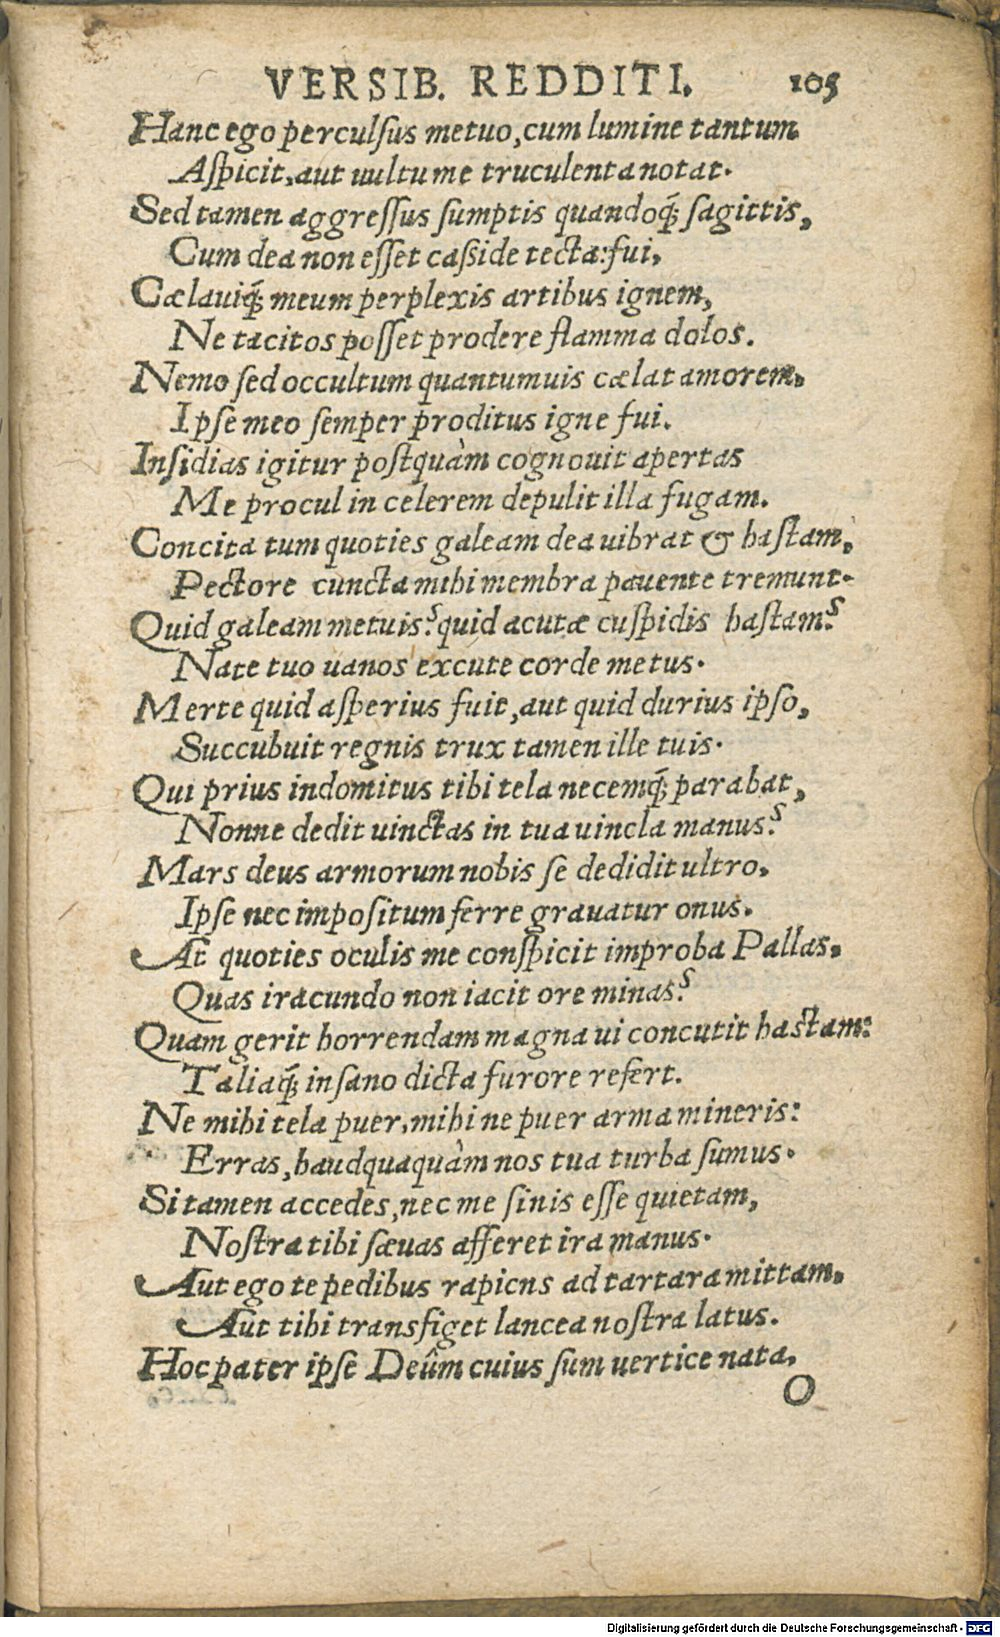 VERSIB. REDDITI. 105
Hanc ego perculſus metuo, cum lumine tantum
Aſpicit, aut uultu me truculenta notat.
Sed tamen aggreſſus ſumptis quandoq́; ſagittis,
Cum dea non eſſet caſside tecta: fui,
Cælauiq́; meum perplexis artibus ignem,
Ne tacitos poſſet prodere flamma dolos.
Nemo ſed occultum quantumuis cælat amorem,
Ipſe meo ſemper proditus igne fui.
Inſidias igitur poſtquàm cognouit apertas
Me procul in celerem depulit illa fugam.
Concita tum quoties galeam dea uibrat & haſtam,
Pectore cuncta mihi membra pauente tremunt.
Quid galeam metuis? quid acutæ cuſpidis haſtam?
Nate tuo uanos excute corde metus.
Merte quid aſperius fuit, aut quid durius ipſo,
Succubuit regnis trux tamen ille tuis.
Qui prius indomitus tibi tela necemq́; parabat,
Nonne dedit uinctas in tua uincla manus?
Mars deus armorum nobis ſe dedidit ultro,
Ipſe nec impoſitum ferre grauatur onus.
At quoties oculis me conſpicit improba Pallas,
Quas iracundo non iacit ore minas?
Quam gerit horrendam magna ui concutit haſtam:
Taliaq́; inſano dicta furore refert.
Ne mihi tela puer, mihi ne puer arma mineris:
Erras, haudquaquàm nos tua turba ſumus.
Si tamen accedes, nec me ſinis eſſe quietam,
Noſtra tibi ſæuas afferet ira manus.
Aut ego te pedibus rapiens ad tartara mittam,
Aut tibi transfiget lancea noſtra latus.
Hoc pater ipſe Deûm cuius ſum uertice nata,
O
Digitalisierung gefördert durch die Deutsche Forschungsgemeinschaft - DFG